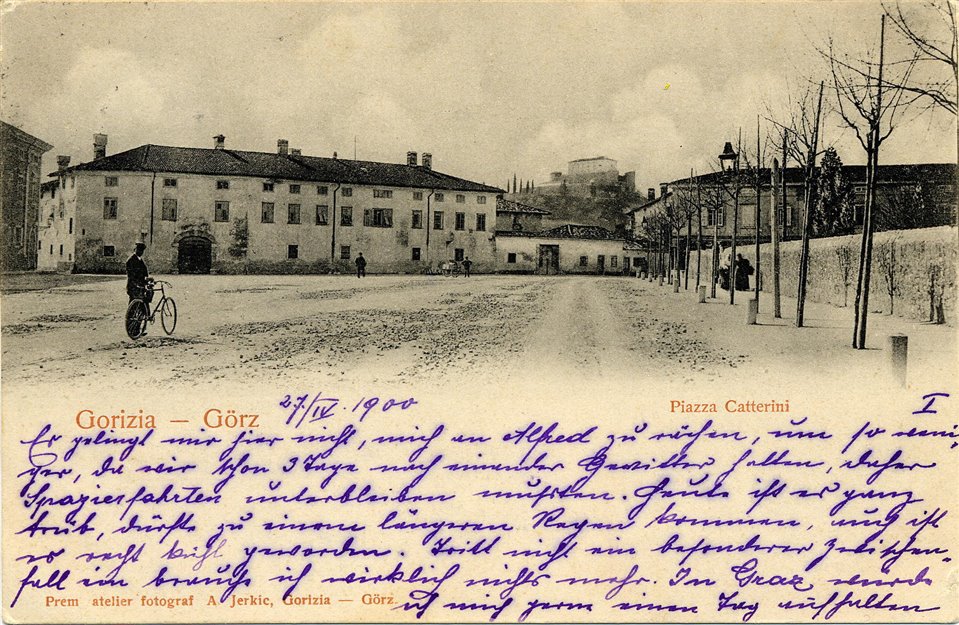 Gorizia — Görz 27./IV. 1900
Piazza Catterini
I
Es gelingt mir hier nicht, mich an Alfred zu rächen, um so weni-
ger, da wir schon 3 Tage nach einander Gewitter hatten, daher
Spazierfahrten unterbleiben mußten. Heute ist es ganz
trüb, dürfte zu einem längeren Regen kommen, auch ist
es recht kühl geworden. Tritt nicht ein besonderer Zwischen-
fall ein brauche ich wirklich nichts mehr. In Graz wurde
ich mich gerne einen Tag aufhalten
Prem atelier fotograf A Jerkic, Gorizia — Görz.